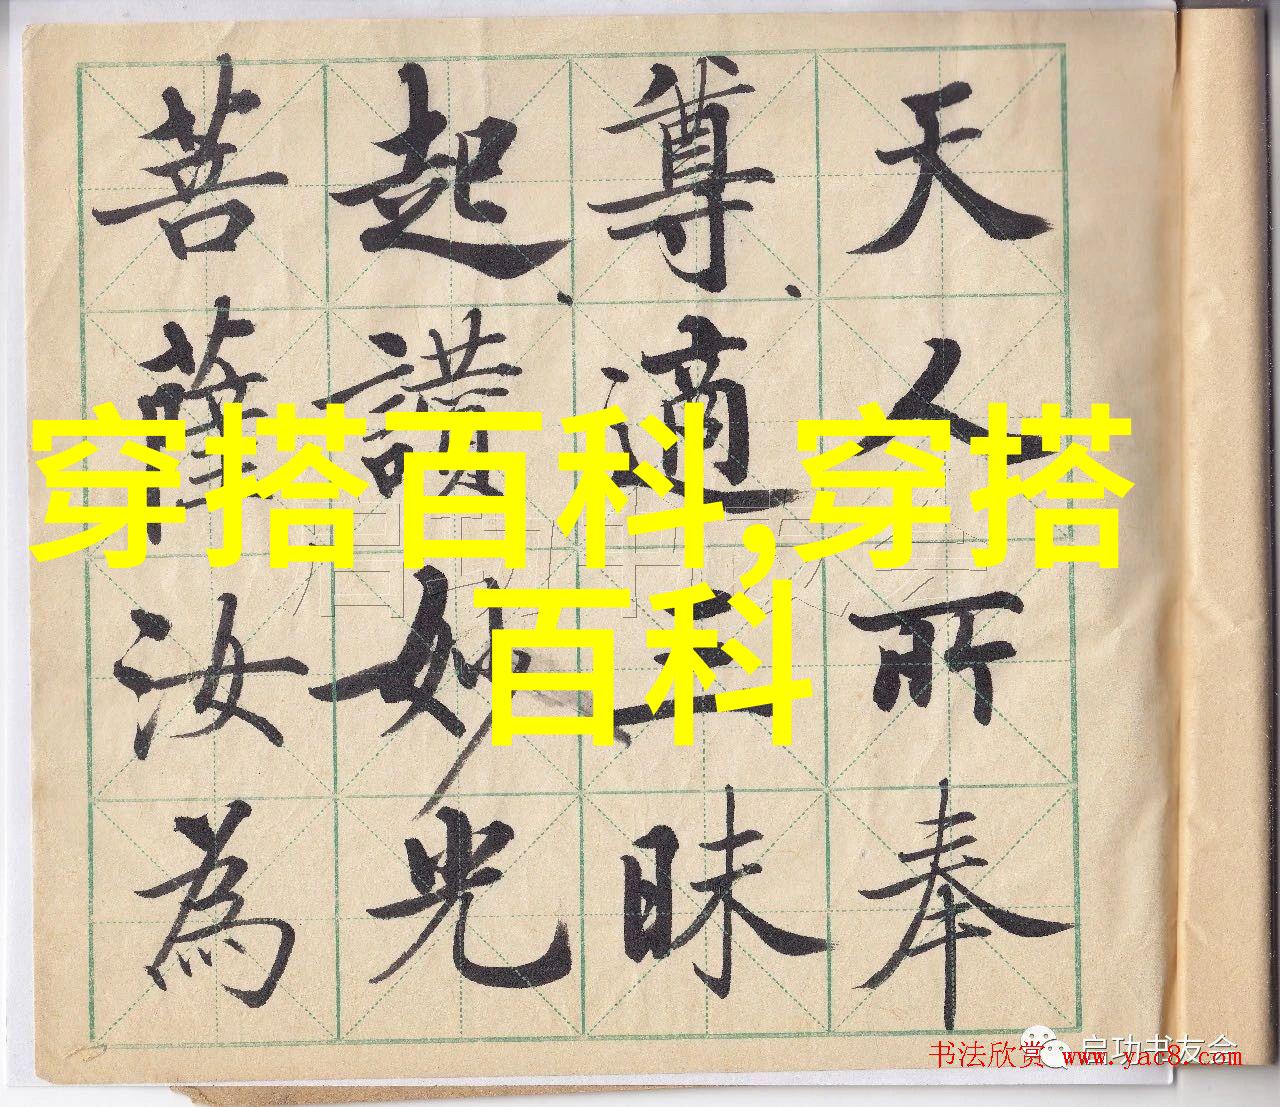 天人所奉
尊、適三昧
起、讚妙光
菩薩汝為
穿搭百科,穿搭
百科
启功书友会
启功书友会
书法欣赏 www.yac8.com